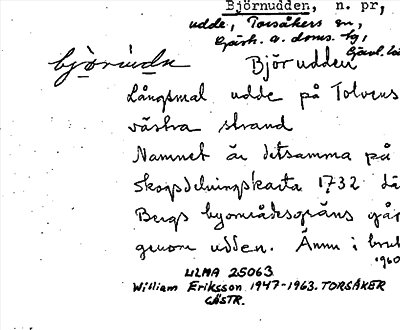 Björnudden, n. pr,
udde, Torsåkers sn,
Gävleb. o. doms. hg,
Björudden
Långsmal udde på Tolvens
västra strand
Namnet är detsamma på
skogsdelningskarta 1732 dä
Bergs byområdesgräns går
genom udden. Ännu i bruk
1960
ULMA 25063
William Eriksson 1947-1963. TORSÅKER
GÄSTR.